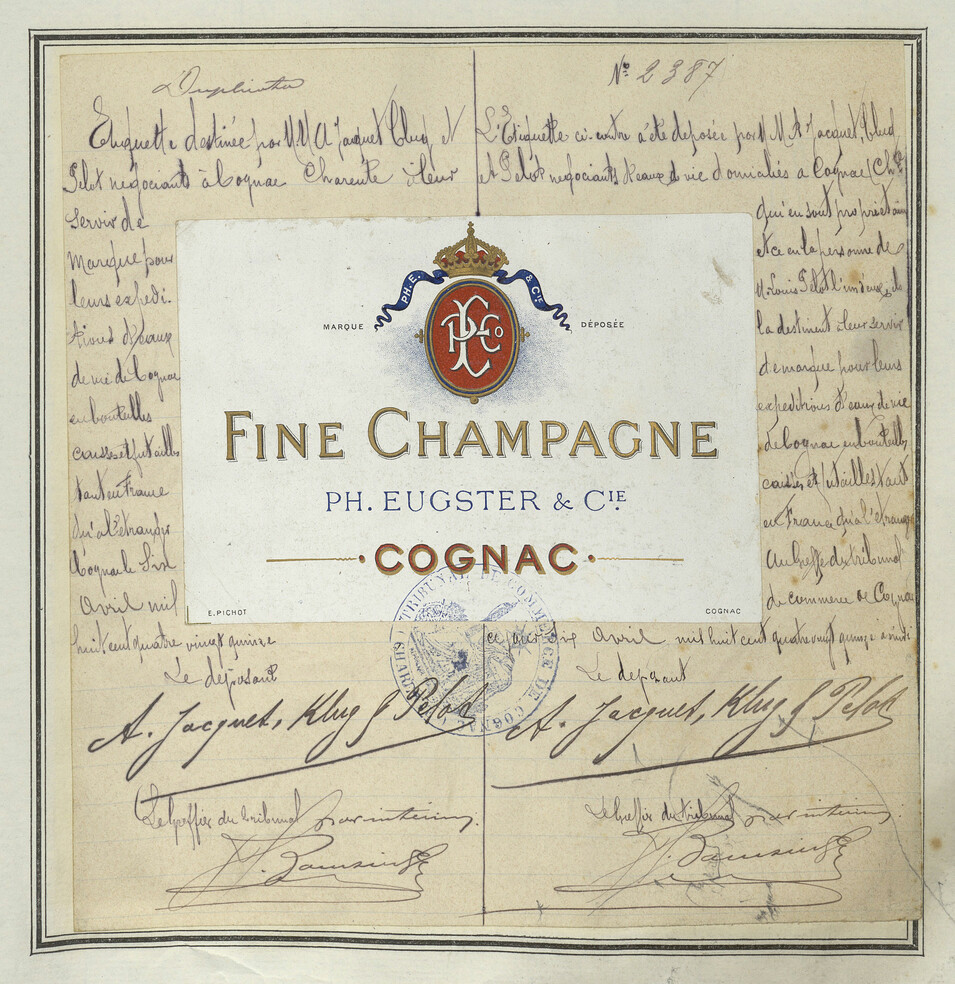 Duplicata
Etiquette destinée par MM A Jacquet Klug et
Pelot negociants à Cognac Charente à leur
servir de
Marque pour
leurs expedi-
tions d'eaux
de vie de Cognac
en bouteilles
caisses et futailles
tant en France
qu'à l'étranger
Cognac le Six
Avril mil
huit cent quatre vingt quinze
Le déposant
A. Jacquet, Klug & Pelot
Le Greffier du tribunal par intérim
N° 2387
L'Etiquette ci-contre a été déposée par MM. A Jacquet, Klug
et Pelot negociants d'eaux de vie domiciliés à Cognac (Chte
qui en sont propriétaires
et ce en la personne de
M. Louis Pelot l'un d'eux
la destinent à leur servir
de marque pour leurs
expeditions d'eaux de vie
de Cognac en bouteilles
caisses et futailles tant
en France qu'à l'étranger
Au Greffe du tribunal
de commerce de Cognac
ce jour six Avril mil huit cent quatre vingt quinze
Le déposant
A. Jacquet, Klug & Pelot
Le Greffier du tribunal par intérim
PH. E. & CIE
MARQUE DÉPOSÉE
FINE CHAMPAGNE
PH. EUGSTER & CIE
COGNAC
E. PICHOT COGNAC
TRIBUNAL DE COMMERCE DE COGNAC